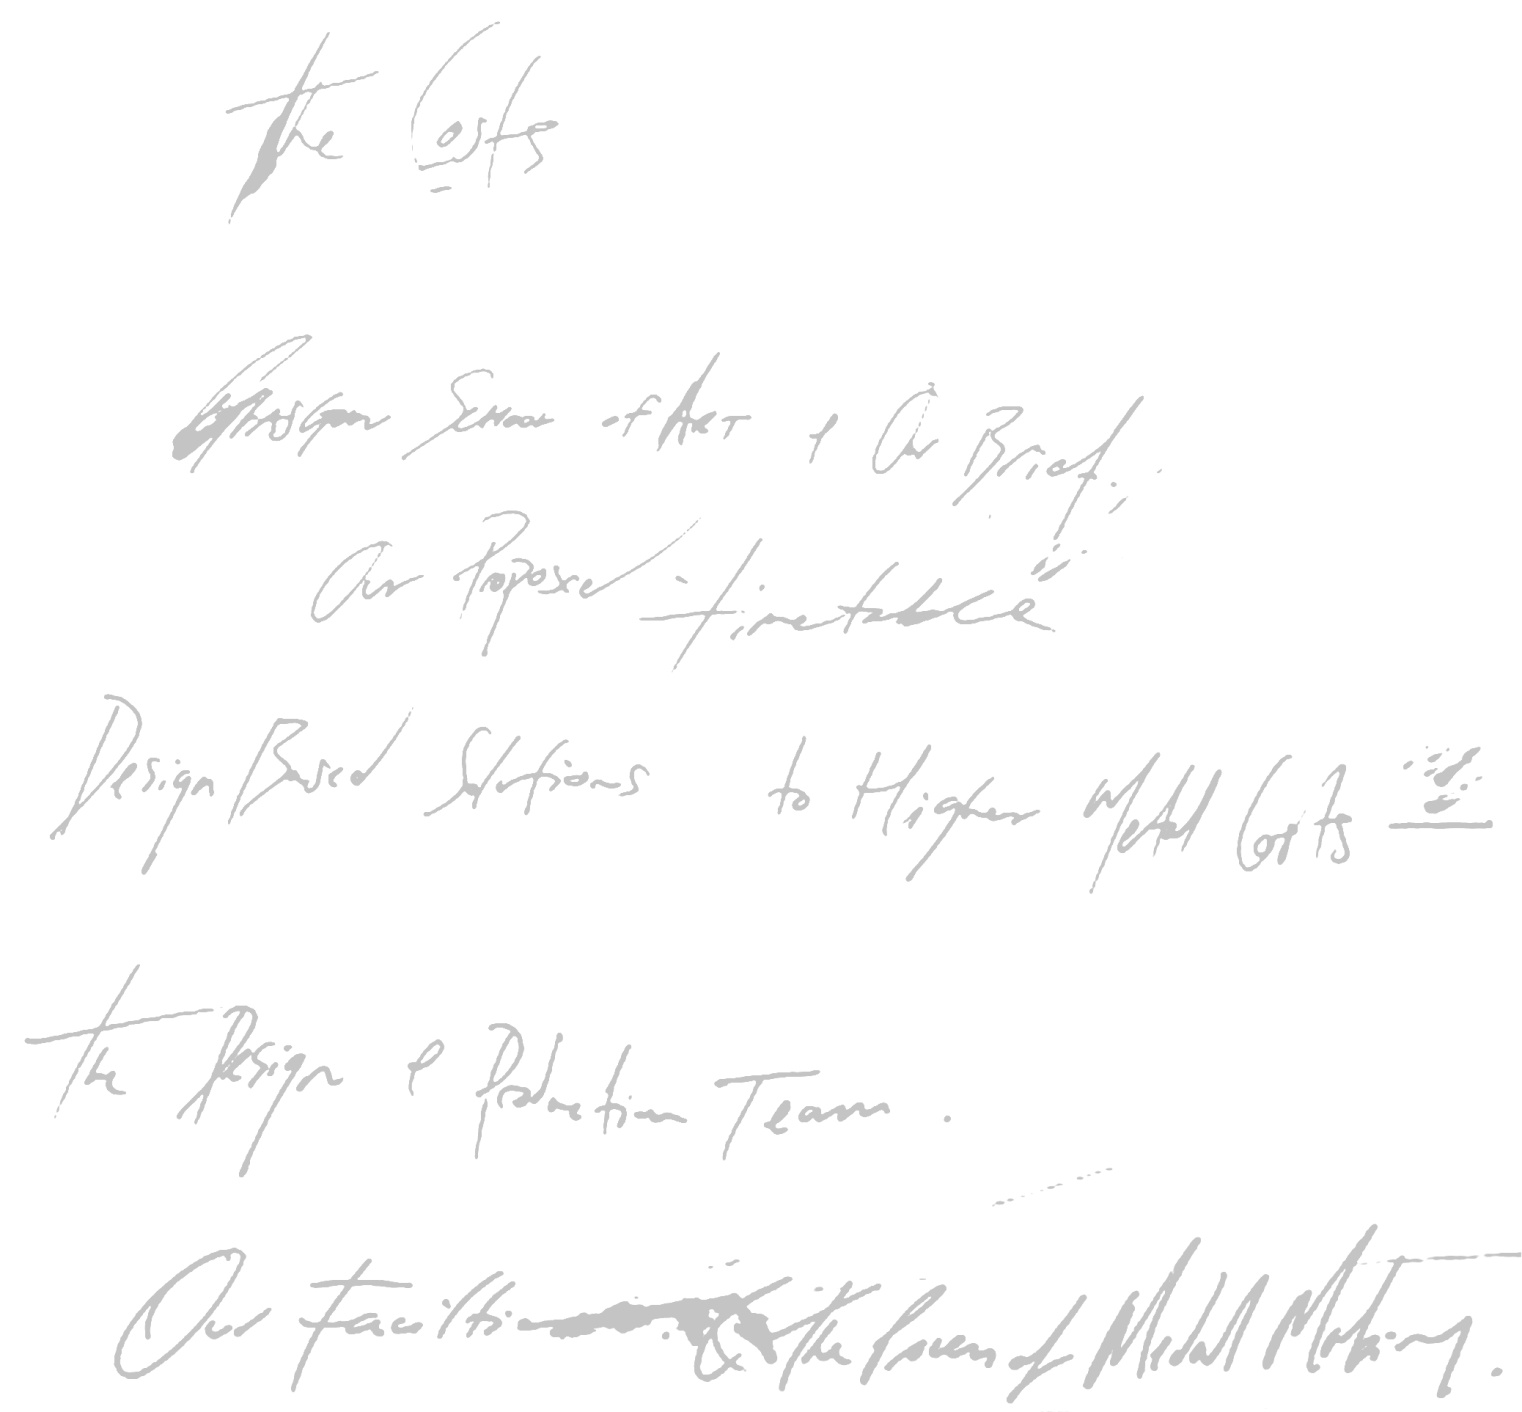 The Costs
Glasgow School of Art & Our Brief.
Our Proposed timetable
Design Based Solutions to Higher Metal Costs
The Design & Production Team.
Our Facilities & the Process of Medal Making.